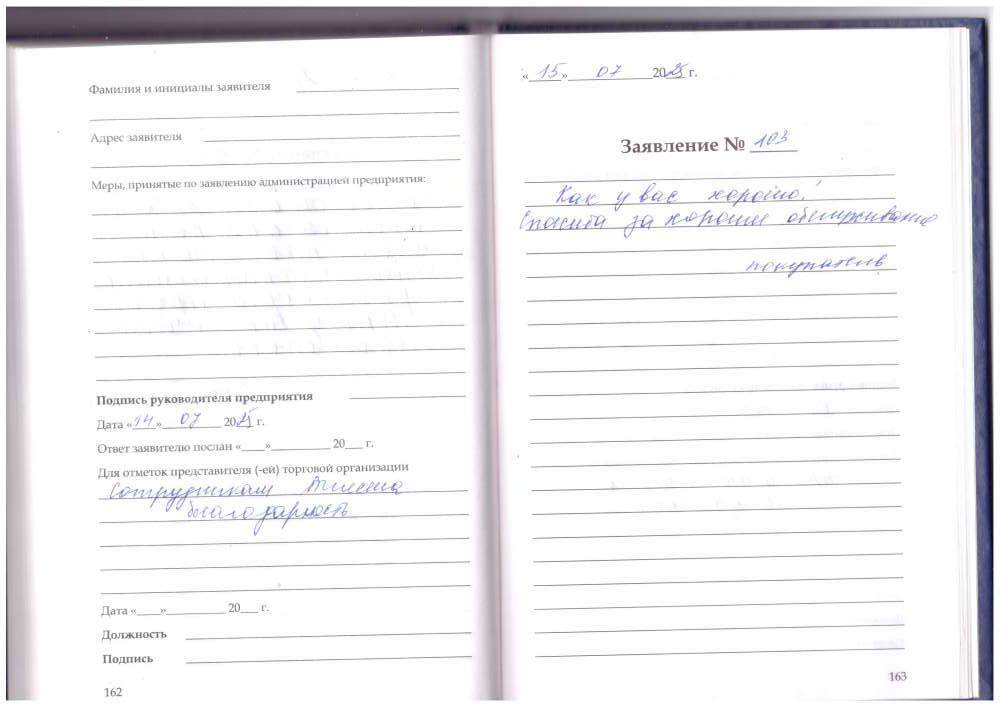 Фамилия и инициалы заявителя
Адрес заявителя
Меры, принятые по заявлению администрацией предприятия:
Подпись руководителя предприятия
Дата «14» 07 2025 г.
Ответ заявителю послан «____»__________ 20___ г.
Для отметок представителя (-ей) торговой организации
Сотрудникам
благодарность
Дата «____»__________ 20___ г.
Должность
Подпись
162
«15» 07 2025 г.
Заявление № 103
Как у вас хорошо!
Спасиба за хороше обслуживание
покупатель
163